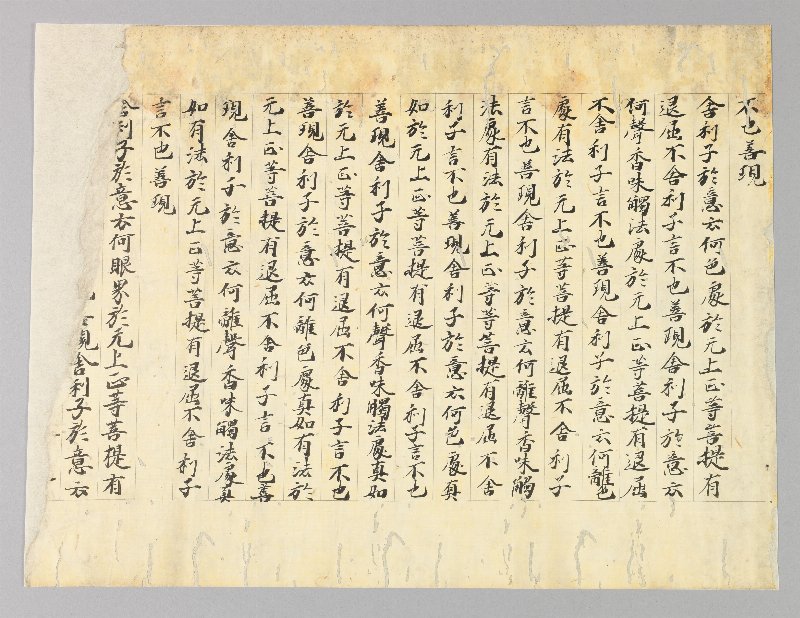 不也善現
舍利子於意云何色處於无上正等菩提有
退屈不舍利子言不也善現舍利子於意云
何聲香味觸法處於无上正等菩提有退屈
不舍利子言不也善現舍利子於意云何離色
處有法於无上正等菩提有退屈不舍利子
言不也善現舍利子於意云何離聲香味觸
法處有法於无上正等等菩提有退屈不舍
利子言不也善現舍利子於意云何色處真
如於无上正等菩提有退屈不舍利子言不也
善現舍利子於意云何聲香味觸法處真如
於无上正等菩提有退屈不舍利子言不也
善現舍利子於意云何離色處真如有法於
无上正等菩提有退屈不舍利子言不也善
現舍利子於意云何離聲香味觸法處真
如有法於无上正等菩提有退屈不舍利子
言不也善現
舍利子於意云何眼界於无上正等菩提有
現舍利子於意云